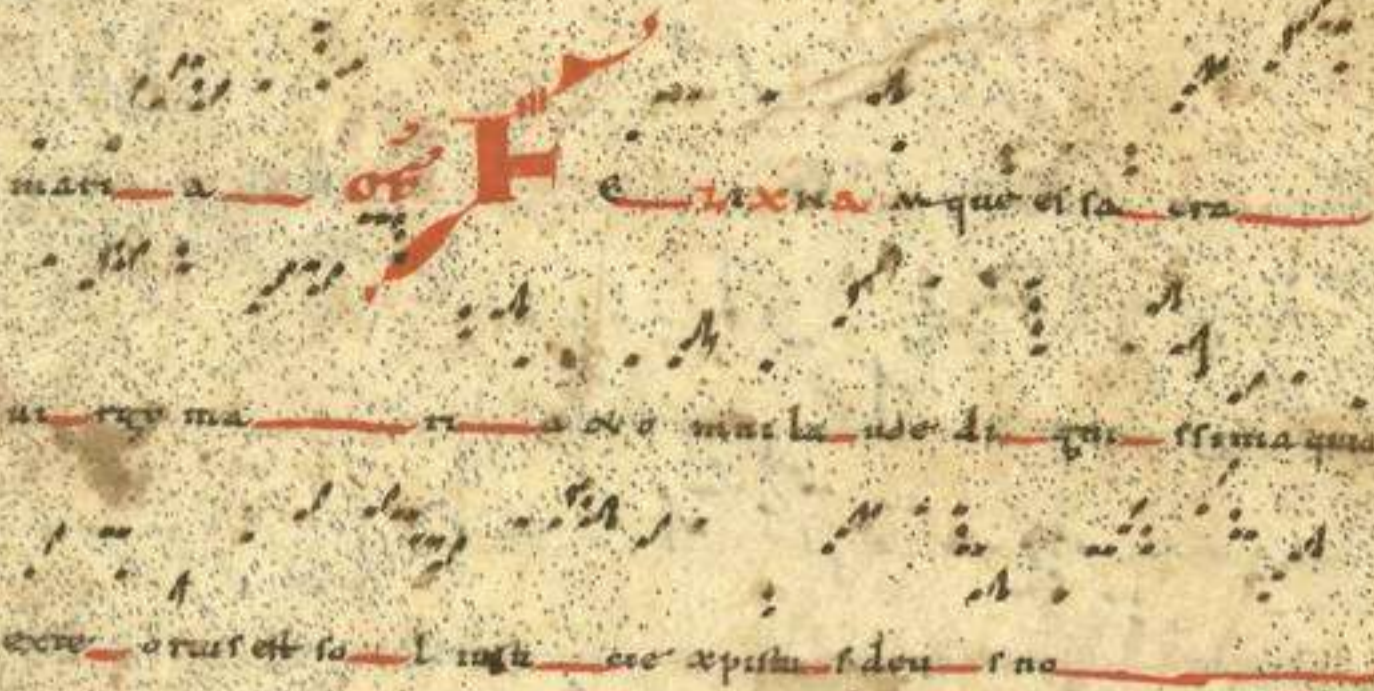 mari a OF FELIX NAmque es sacra
uirgo maria & omni laude dignissima quia
ex te ortus est sol iusticie xpistus deus no